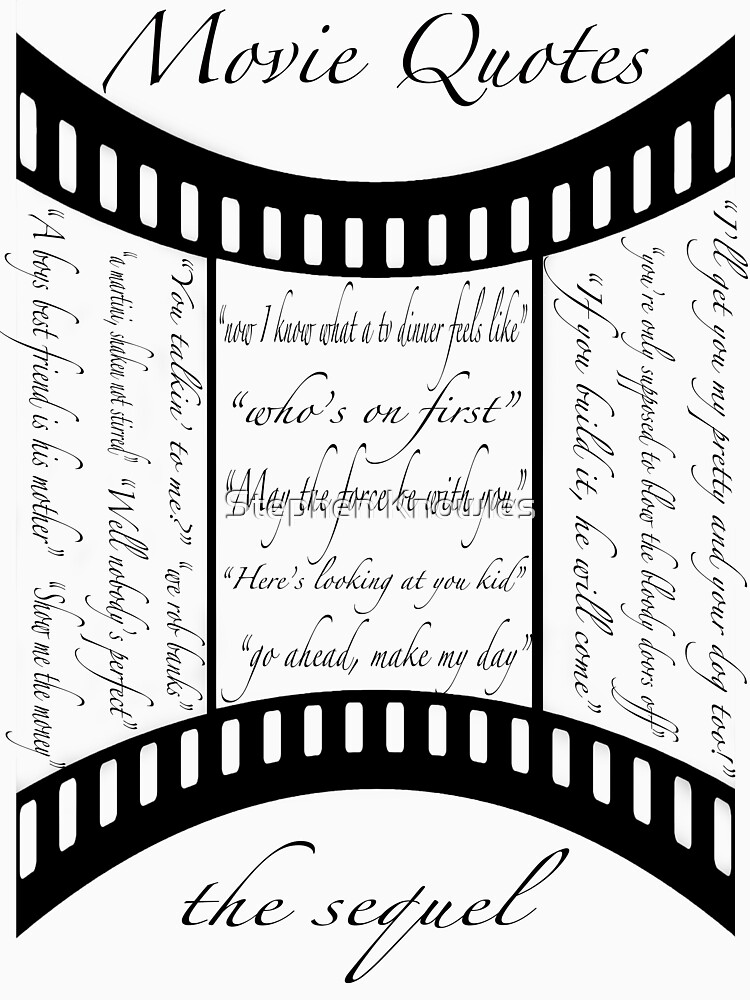 Movie Quotes
“A boys best friend is his mother” “Show me the money”
“a martini, shaken not stirred” “Well nobody's perfect”
“You talkin' to me?” “we rob banks”
“now I know what a tv dinner feels like”
“who's on first”
“May the force be with you”
Stephen Knowles
“Here's looking at you kid”
“go ahead, make my day”
“If you build it, he will come”
“you're only supposed to blow the bloody doors off”
“I'll get you my pretty and your dog too!”
the sequel